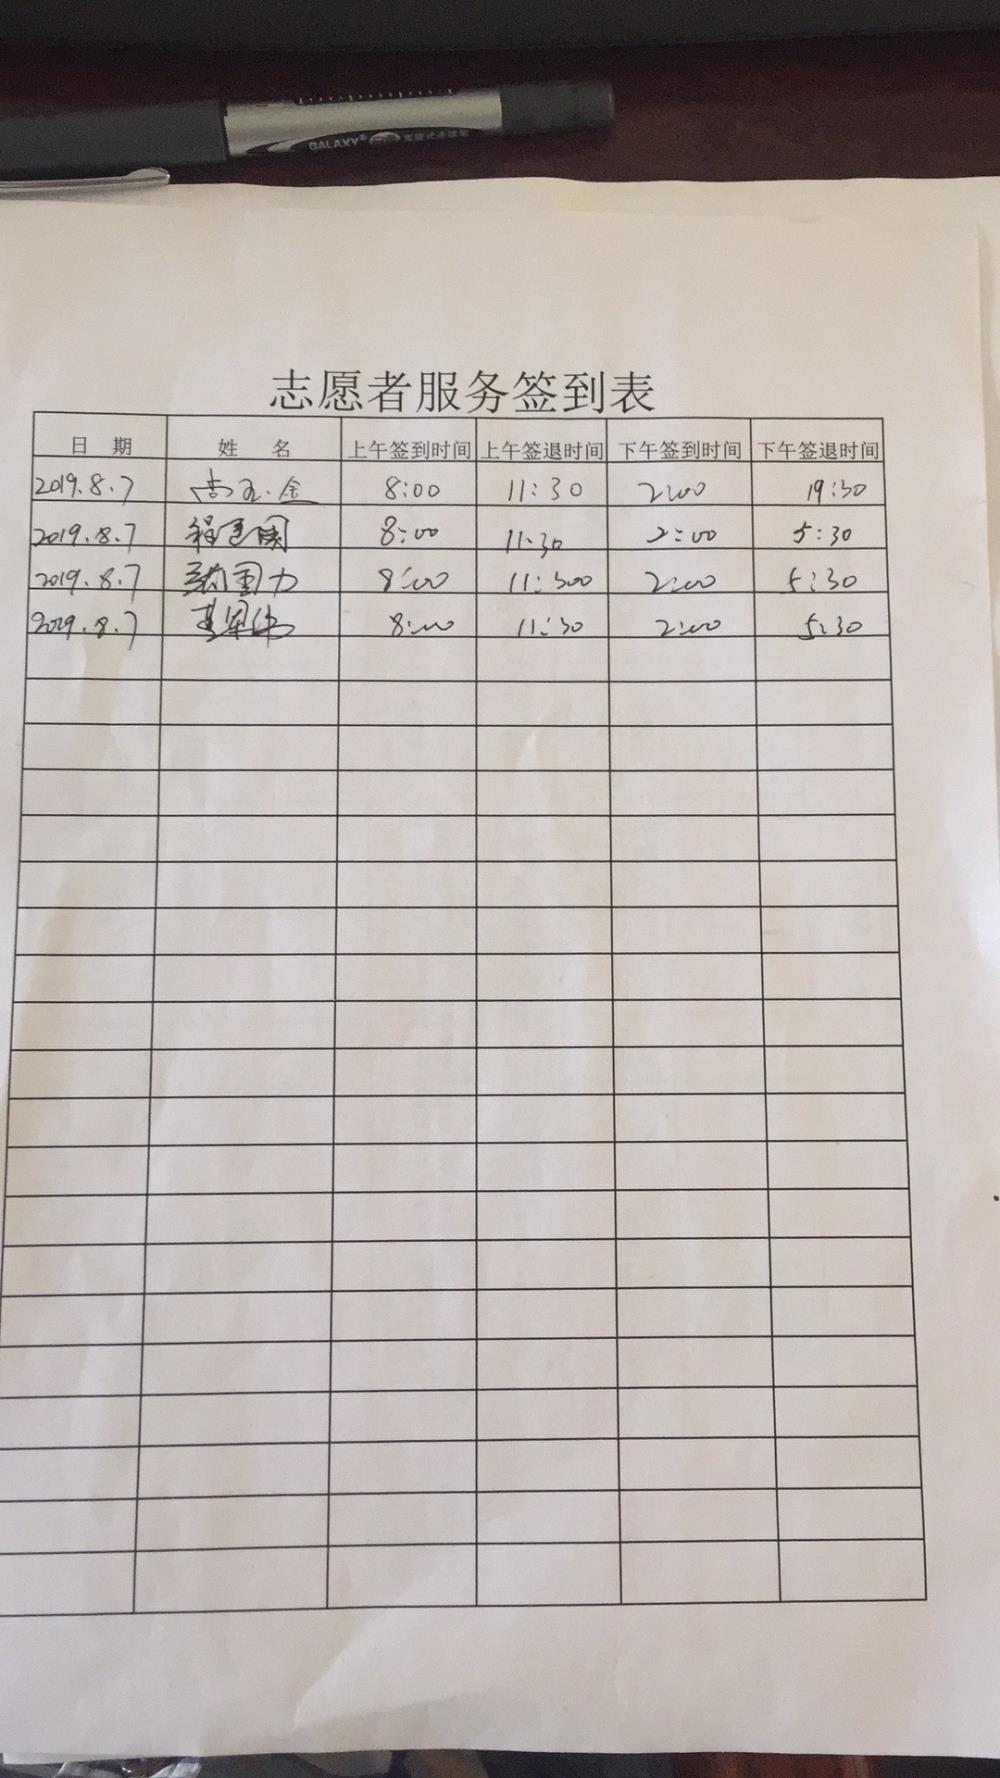 GALAXY®
志愿者服务签到表
日 期 姓 名 上午签到时间 上午签退时间 下午签到时间 下午签退时间
2019.8.7 8:00 11:30 2:00 19:30
2019.8.7 程建国 8:00 11:30 2:00 5:30
2019.8.7 国力 8:00 11:300 2:00 5:30
2019.8.7 8:00 11:30 2:00 5:30